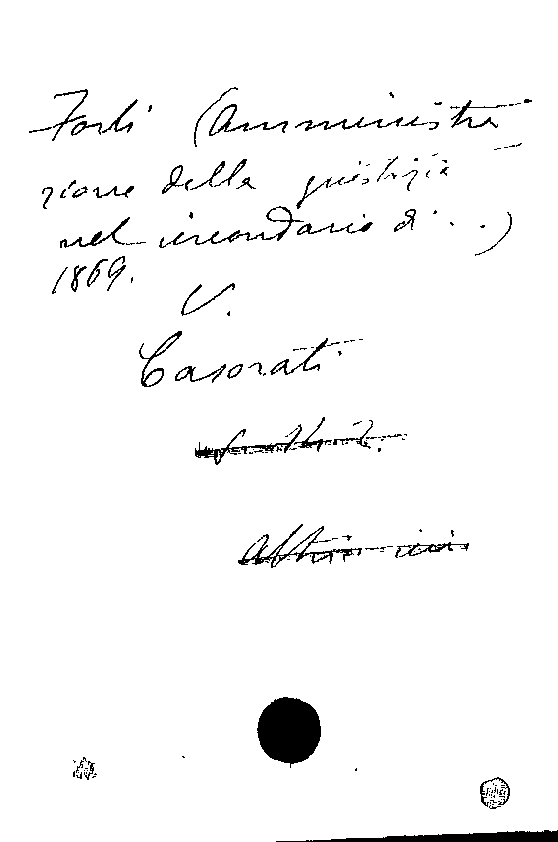 Forlì (Amministra
zione della giustizia
nel circondario di . . .)
1869.
V.
Casorati